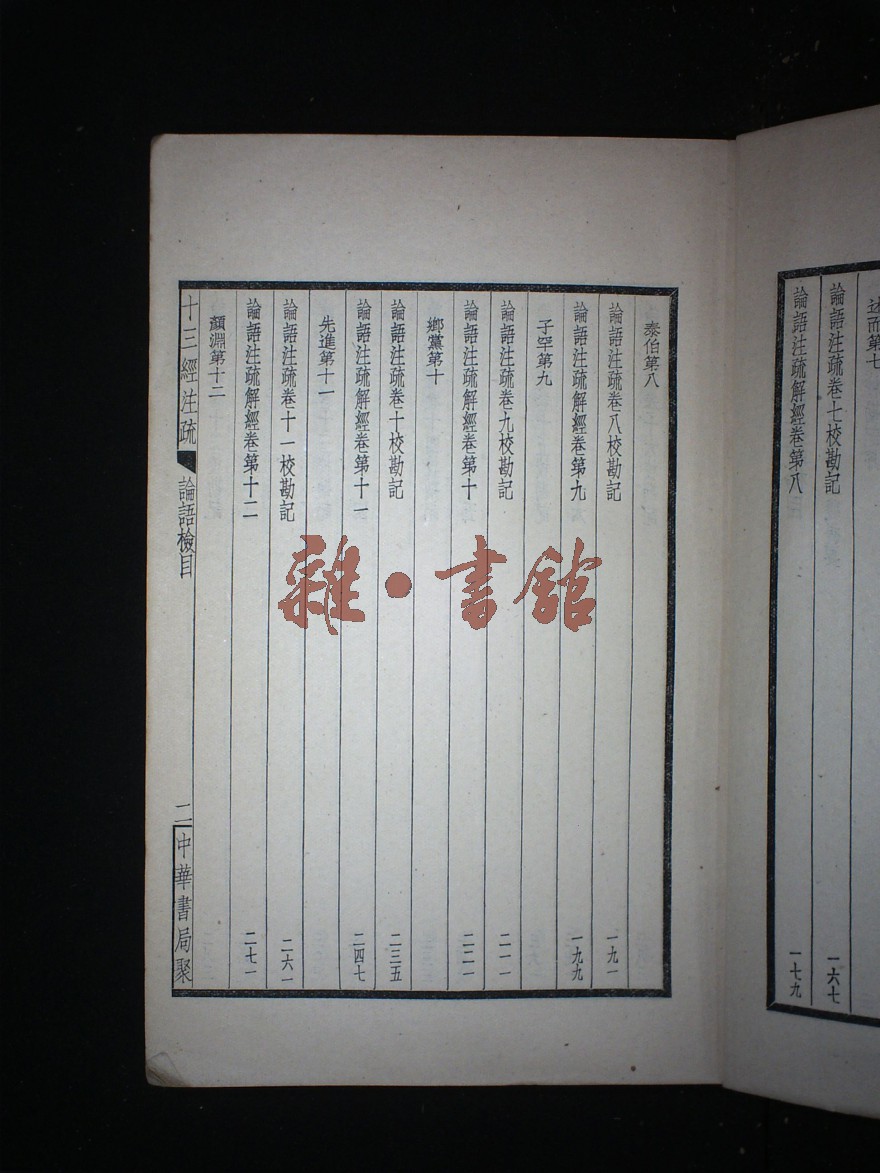 述而第七
論語注疏卷七校勘記 一六七
論語注疏解經卷第八 一七九
泰伯第八
論語注疏卷八校勘記 一九一
論語注疏解經卷第九 一九九
子罕第九
論語注疏卷九校勘記 二一一
論語注疏解經卷第十 二二一
鄉黨第十
論語注疏卷十校勘記 二三五
論語注疏解經卷第十一 二四七
先進第十一
論語注疏卷十一校勘記 二六一
論語注疏解經卷第十二 二七一
顏淵第十二
十三經注疏 論語檢目 二 中華書局聚
雜·書館